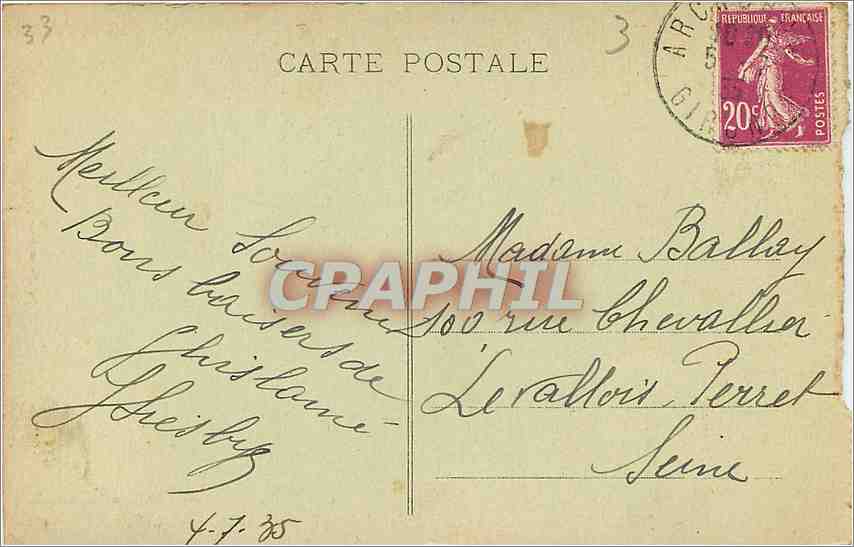 33
3
CARTE POSTALE
ARC
GIRONDE
REPUBLIQUE FRANÇAISE
20c
POSTES
Meilleur Souvenir
Bons baisers de
Ghislaine
4-7-35
CPARPHIL
Madame Ballay
100 rue Chevallier
Levallois Perret
Seine